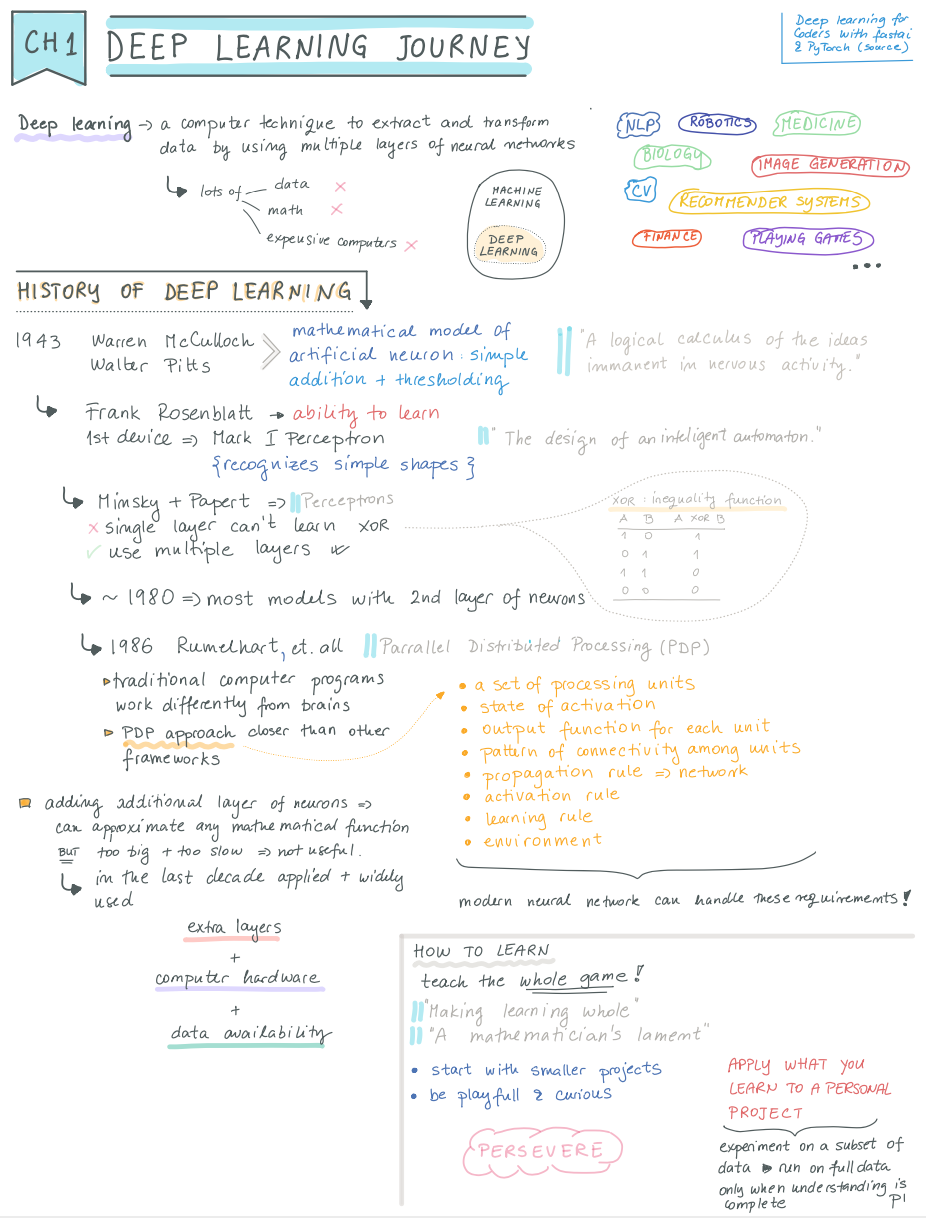 CH1
DEEP LEARNING JOURNEY
Deep learning for
Coders with fastai
& PyTorch (source)
Deep learning → a computer technique to extract and transform
data by using multiple layers of neural networks
lots of
data ×
math ×
expensive computers ×
MACHINE
LEARNING
DEEP
LEARNING
NLP
ROBOTICS
MEDICINE
BIOLOGY
IMAGE GENERATION
CV
RECOMMENDER SYSTEMS
FINANCE
PLAYING GAMES
...
HISTORY OF DEEP LEARNING
1943 Warren McCulloch
Walter Pitts
mathematical model of
artificial neuron: simple
addition + thresholding
"A logical calculus of the ideas
immanent in nervous activity."
Frank Rosenblatt → ability to learn
1st device ⇒ Mark I Perceptron
{recognizes simple shapes}
" The design of an inteligent automaton."
Minsky + Papert ⇒ Perceptrons
× single layer can't learn XOR
✓ use multiple layers
XOR : inequality function
A B A XOR B
1 0 1
0 1 1
1 1 0
0 0 0
~ 1980 ⇒ most models with 2nd layer of neurons
1986 Rumelhart, et. all Parrallel Distributed Processing (PDP)
traditional computer programs
work differently from brains
PDP approach closer than other
frameworks
• a set of processing units
• state of activation
• output function for each unit
• pattern of connectivity among units
• propagation rule ⇒ network
• activation rule
• learning rule
• environment
modern neural network can handle these requirements!
adding additional layer of neurons ⇒
can approximate any mathematical function
BUT too big + too slow ⇒ not useful.
in the last decade applied + widely
used
extra layers
+
computer hardware
+
data availability
HOW TO LEARN
teach the whole game!
"Making learning whole"
"A mathematician's lament"
• start with smaller projects
• be playfull & curious
PERSEVERE
APPLY WHAT YOU
LEARN TO A PERSONAL
PROJECT
experiment on a subset of
data ▸ run on full data
only when understanding is
complete P1